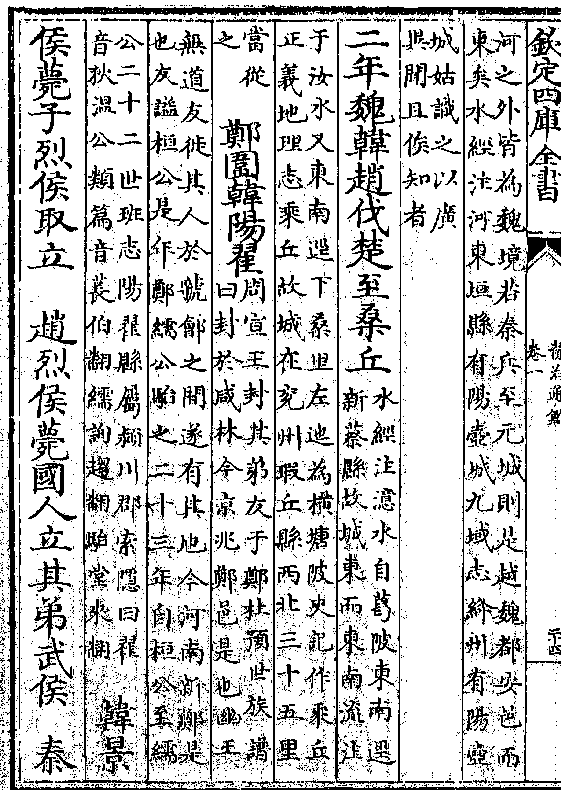 欽定四庫全書
資治通鑑
卷一
河之外皆為魏境若秦兵至元城則是越魏都安邑而
東矣水經注河東垣縣有陽壺城九域志絳州有陽壺
城姑識之以廣
異聞且俟知者
二年魏韓趙伐楚至桑丘
水經注澺水自葛陂東南逕
新蔡縣故城東而東南流注
于汝水又東南逕下桑里左迆為橫塘陂史記作乘丘
正義地理志乘丘故城在兖州瑕丘縣西北三十五里
當從
之
鄭圍韓陽翟
周宣王封其弟友于鄭杜預世族譜
曰封於咸林今京兆鄭邑是也幽王
無道友徙其人於虢鄶之間遂有其地今河南新鄭是
也友諡桓公是年鄭繻公駘之二十三年自桓公至繻
公二十二世班志陽翟縣屬潁川郡索隱曰翟
音狄溫公類篇音萇伯翻繻詢趨翻駘堂來翻
韓景
侯薨子烈侯取立 趙烈侯薨國人立其弟武侯 秦